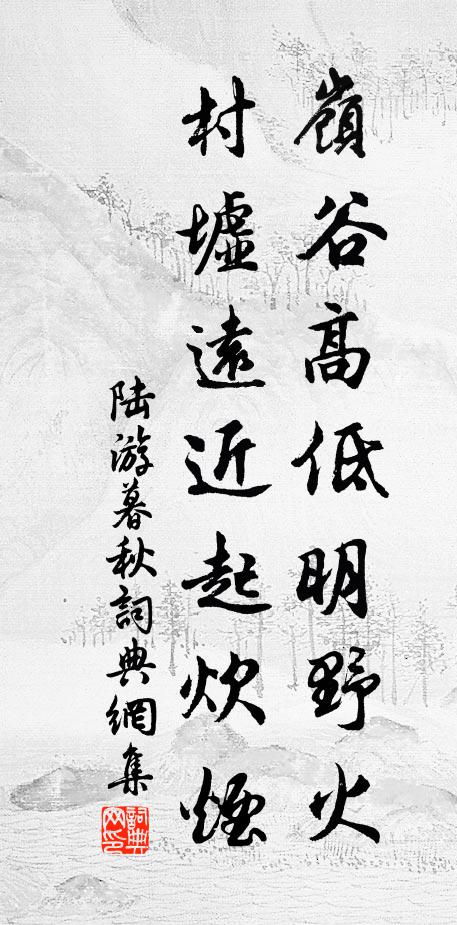 嶺谷高低明野火
村墟遠近起炊煙
陆游暮秋詞典網集
詞典網印